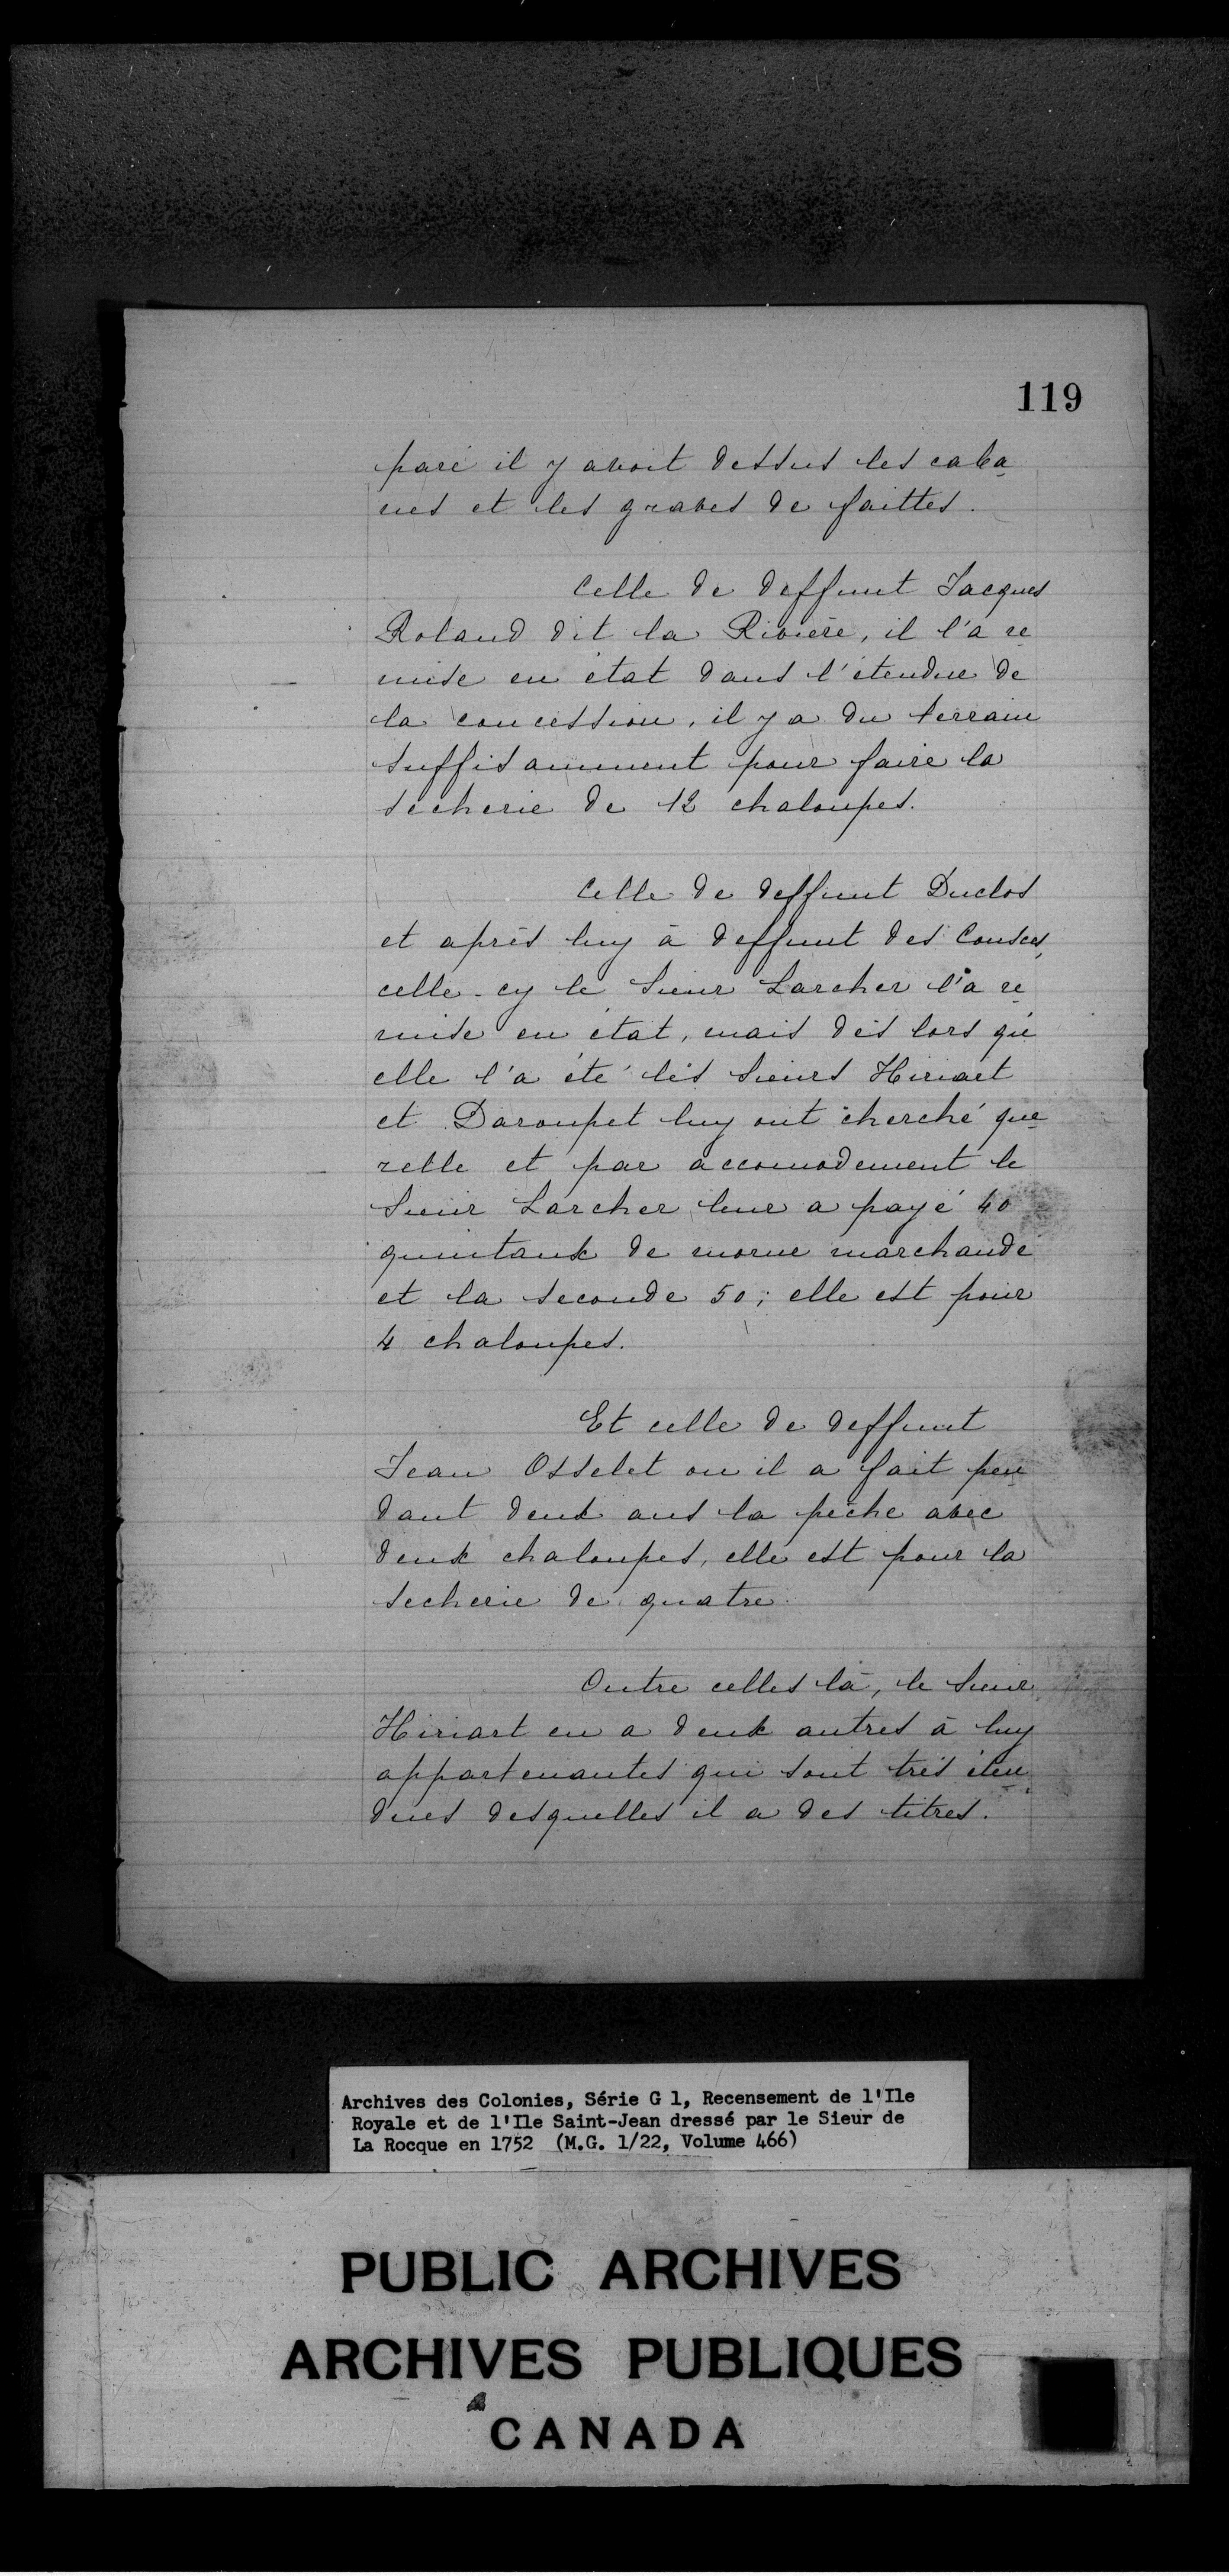 119
paré il y avoit dessus les caba
nes et les graves de faittes.
Celle de deffunt Jacques
Roland dit la Rivière, il l'a re
mise en état dans l'étendue de
la concession, il y a du terrain
suffisamment pour faire la
secherie de 12 chaloupes.
Celle de deffunt Duclos
et après luy à deffunt des Couses,
celle-cy le Sieur Larcher l'a re
mise en état, mais dès lors qu'
elle l'a été les Sieurs Hiriart
et Daroupet luy ont cherché que
relle et par accomodement le
Sieur Larcher leur a payé 40
quintaux de morue marchande
et la seconde 50; elle est pour
4 chaloupes.
Et celle de deffunt
Jean Osselet ou il a fait pen
dant deux ans la pêche avec
deux chaloupes, elle est pour la
secherie de quatre
Outre celles là, le Sieur
Hiriart en a deux autres à luy
appartenantes qui sont très éten
dues desquelles il a des titres.
Archives des Colonies, Série G 1, Recensement de l'Ile
Royale et de l'Ile Saint-Jean dressé par le Sieur de
La Rocque en 1752 (M.G. 1/22, Volume 466)
PUBLIC ARCHIVES
ARCHIVES PUBLIQUES
CANADA